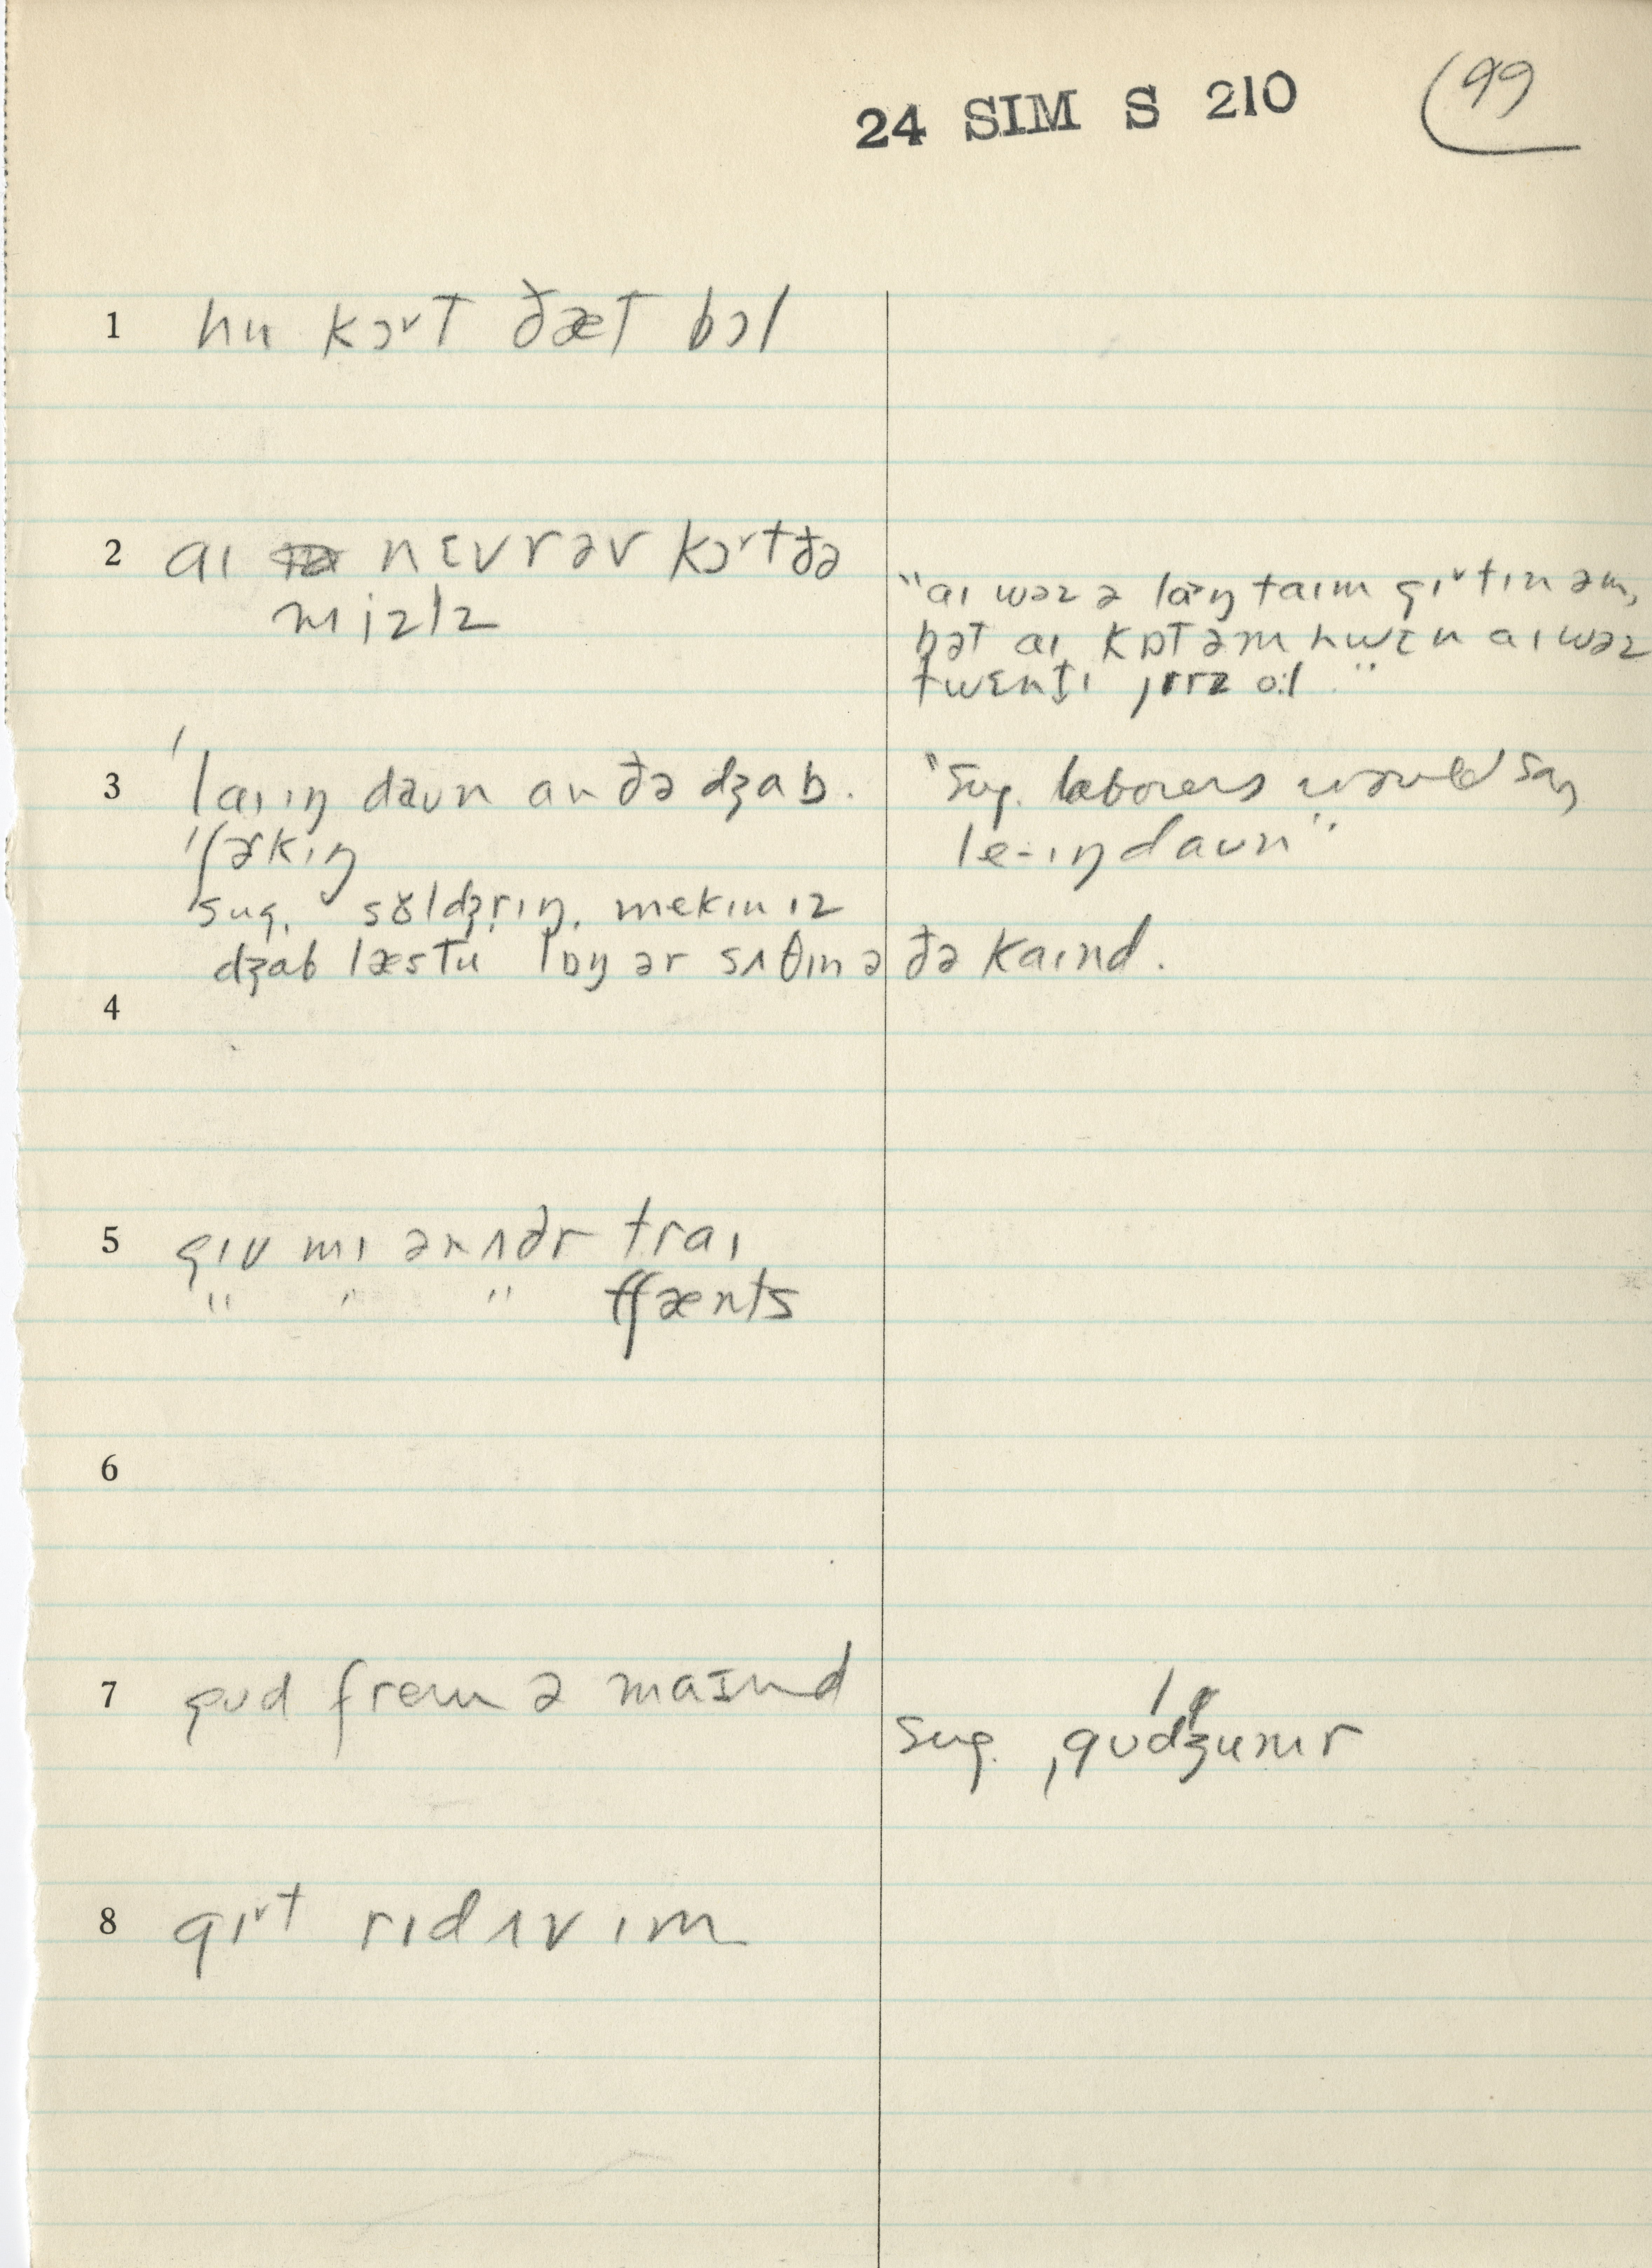 24 SIM S 210 99
1 hu kɔᵛt ðæt bɔl
2 aɪ nɛvrəv kɔᵛt ðə
mizlz
"aɪ wəz ə lɑŋ taɪm gɪᵛtɪn əm,
bət aɪ kɒt əm hwɛn aɪ wəz
twɛntɪ jɪrz o:l."
3 ˈlaɪɪŋ daʊn an ðə dʒab.
ˈʃɚkɪŋ
sug. dʒrɪŋ. mekɪn ɪz
dʒab læs tu lɒŋ ər sʌθɪn ə ðə kaɪnd.
"sug. laborers would say
le-ɪŋ daʊn"
4
5 gɪv mɪ ənʌðr traɪ
" " " tʃænts
6
7 gʊd frem ə maɪnd
sug. ˌgʊdˈʒumr
8 gɪᵛt rɪd ʌv ɪm